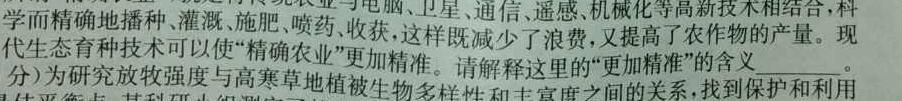 农业与电脑、卫星、通信、遥感、机械化等高新技术相结合,科
学而精确地播种、灌溉、施肥、喷药、收获,这样既减少了浪费,又提高了农作物的产量。现
代生态育种技术可以使“精确农业”更加精准。请解释这里的“更加精准”的含义________。
分)为研究放牧强度与高寒草地植被生物多样性和丰富度之间的关系,找到保护和利用